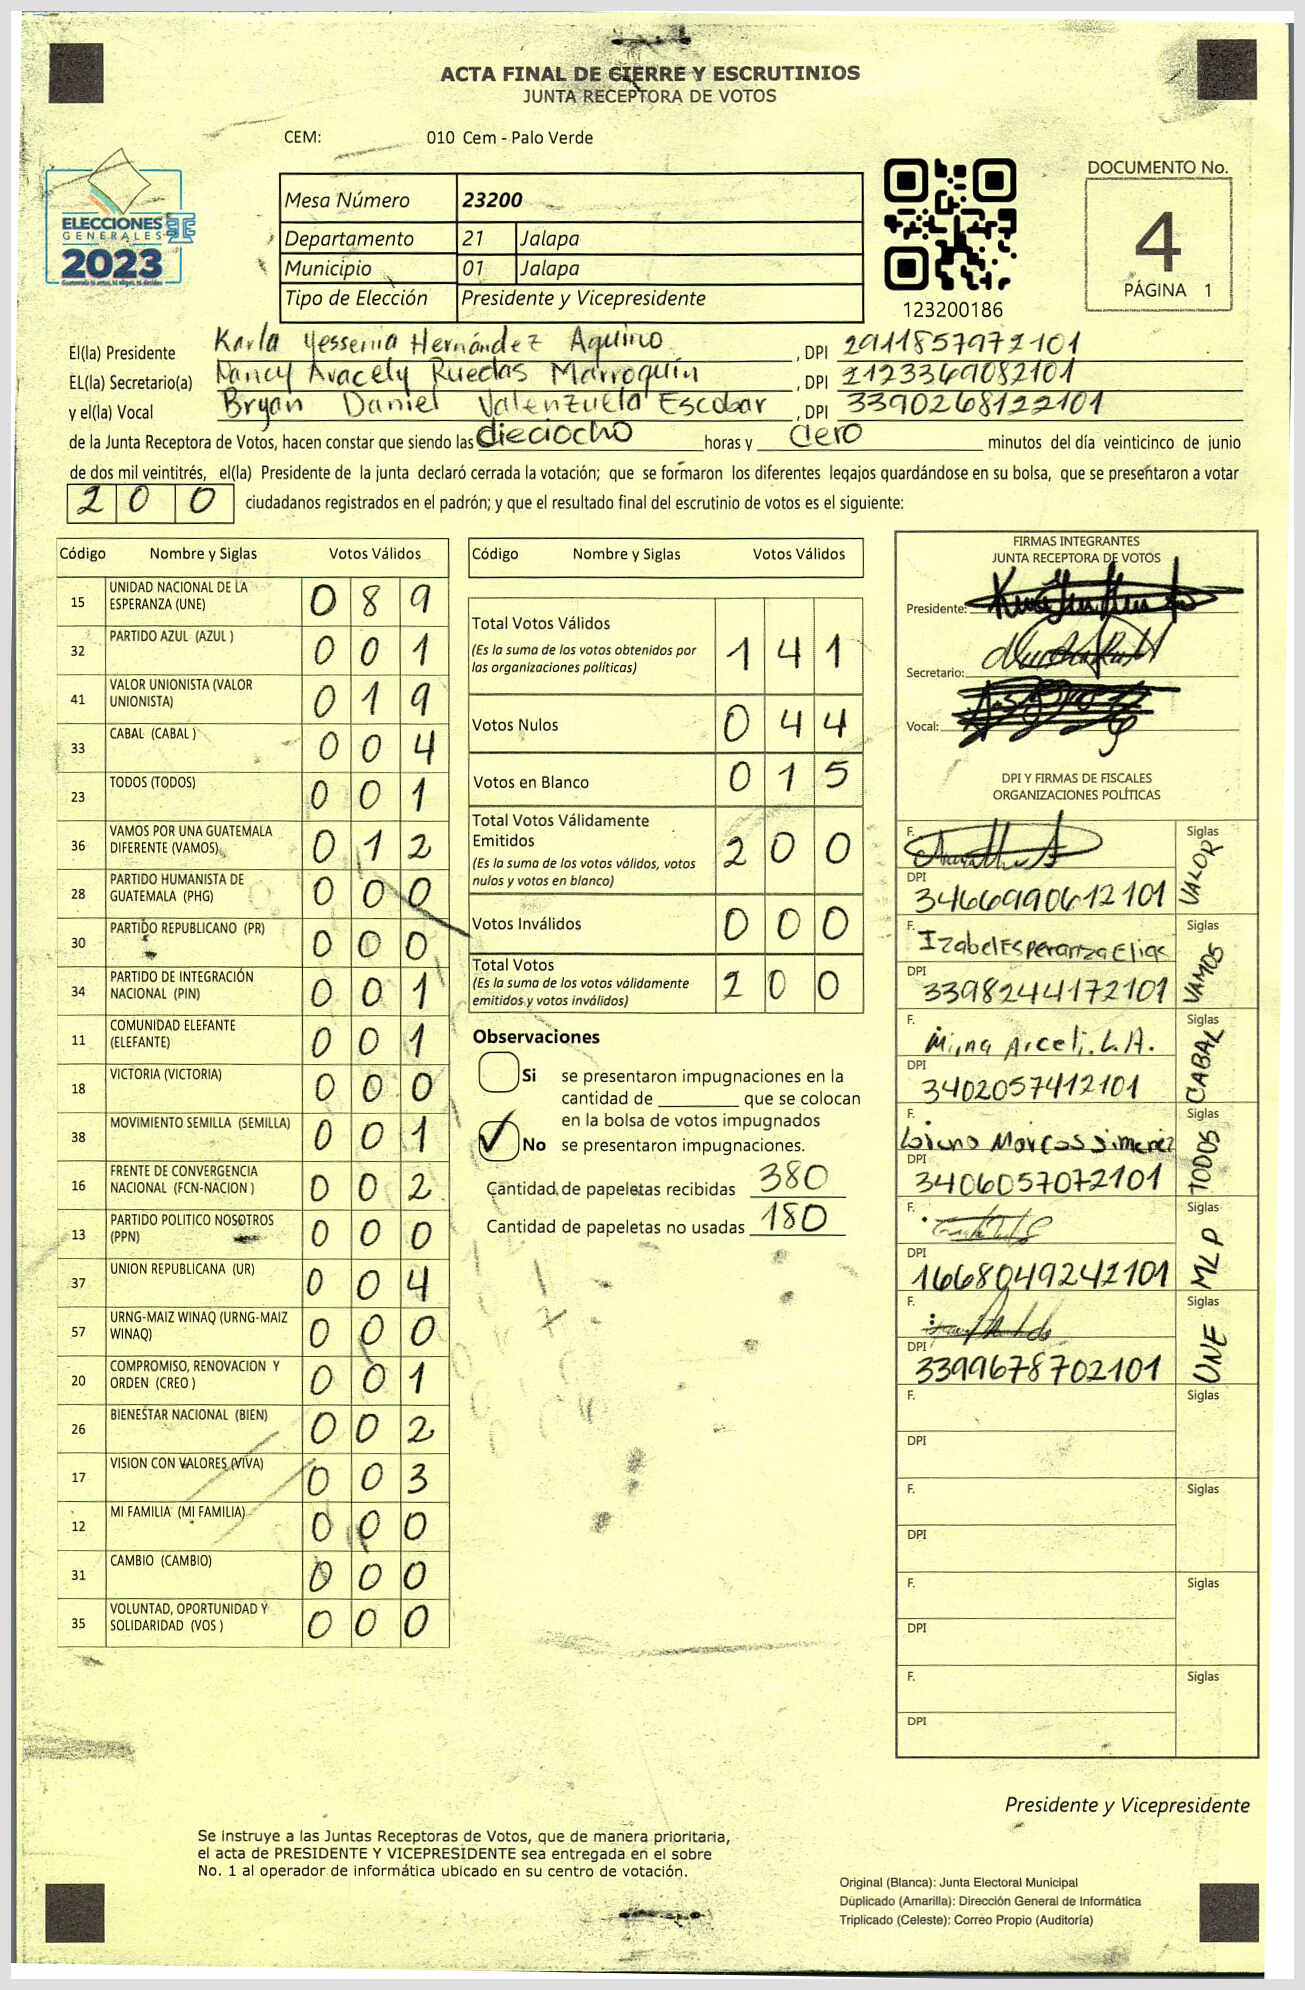 ACTA FINAL DE CIERRE Y ESCRUTINIOS
JUNTA RECEPTORA DE VOTOS
CEM: 010 Cem - Palo Verde
ELECCIONES
GENERALES
2023
Mesa Número 23200
Departamento 21 Jalapa
Municipio 01 Jalapa
Tipo de Elección Presidente y Vicepresidente
123200186
DOCUMENTO No.
4
PÁGINA 1
El(la) Presidente Karla Yessenia Hernández Aquino, DPI 2911857972101
EL(la) Secretario(a) Nancy Aracely Ruedas Marroquín, DPI 2123369082101
y el(la) Vocal Bryan Daniel Valenzuela Escobar, DPI 3390268122101
de la Junta Receptora de Votos, hacen constar que siendo las dieciocho horas y cero minutos del día veinticinco de junio
de dos mil veintitrés, el(la) Presidente de la junta declaró cerrada la votación; que se formaron los diferentes legajos guardándose en su bolsa, que se presentaron a votar
200 ciudadanos registrados en el padrón; y que el resultado final del escrutinio de votos es el siguiente:
Código Nombre y Siglas Votos Válidos
15 UNIDAD NACIONAL DE LA ESPERANZA (UNE) 089
32 PARTIDO AZUL (AZUL ) 001
41 VALOR UNIONISTA (VALOR UNIONISTA) 019
33 CABAL (CABAL ) 004
23 TODOS (TODOS) 001
36 VAMOS POR UNA GUATEMALA DIFERENTE (VAMOS) 012
28 PARTIDO HUMANISTA DE GUATEMALA (PHG) 000
30 PARTIDO REPUBLICANO (PR) 000
34 PARTIDO DE INTEGRACIÓN NACIONAL (PIN) 001
11 COMUNIDAD ELEFANTE (ELEFANTE) 001
18 VICTORIA (VICTORIA) 000
38 MOVIMIENTO SEMILLA (SEMILLA) 001
16 FRENTE DE CONVERGENCIA NACIONAL (FCN-NACION ) 002
13 PARTIDO POLITICO NOSOTROS (PPN) 000
37 UNION REPUBLICANA (UR) 004
57 URNG-MAIZ WINAQ (URNG-MAIZ WINAQ) 000
20 COMPROMISO, RENOVACION Y ORDEN (CREO ) 001
26 BIENESTAR NACIONAL (BIEN) 002
17 VISION CON VALORES (VIVA) 003
12 MI FAMILIA (MI FAMILIA) 000
31 CAMBIO (CAMBIO) 000
35 VOLUNTAD, OPORTUNIDAD Y SOLIDARIDAD (VOS ) 000
Código Nombre y Siglas Votos Válidos
Total Votos Válidos 141
(Es la suma de los votos obtenidos por
las organizaciones políticas)
Votos Nulos 044
Votos en Blanco 015
Total Votos Válidamente
Emitidos 200
(Es la suma de los votos válidos, votos
nulos y votos en blanco)
Votos Inválidos 000
Total Votos 200
(Es la suma de los votos válidamente
emitidos y votos inválidos)
Observaciones
Si se presentaron impugnaciones en la
cantidad de ________ que se colocan
en la bolsa de votos impugnados
No se presentaron impugnaciones.
Cantidad de papeletas recibidas 380
Cantidad de papeletas no usadas 180
FIRMAS INTEGRANTES
JUNTA RECEPTORA DE VOTOS
Presidente:
Secretario:
Vocal:
DPI Y FIRMAS DE FISCALES
ORGANIZACIONES POLÍTICAS
F. Siglas VALOR
DPI 3466990612101
F. Izabel Esperanza Elias Siglas VAMOS
DPI 3398244172101
F. Arceli. L.A. Siglas CABAL
DPI 3402057412101
F. Marcos Jimenez Siglas TODOS
DPI 3406057072101
F. Siglas MLP
DPI 1668049242101
F. Siglas UNE
DPI 3399678702101
F. Siglas
DPI
F. Siglas
DPI
F. Siglas
DPI
F. Siglas
DPI
Presidente y Vicepresidente
Se instruye a las Juntas Receptoras de Votos, que de manera prioritaria,
el acta de PRESIDENTE Y VICEPRESIDENTE sea entregada en el sobre
No. 1 al operador de informática ubicado en su centro de votación.
Original (Blanca): Junta Electoral Municipal
Duplicado (Amarilla): Dirección General de Informática
Triplicado (Celeste): Correo Propio (Auditoría)